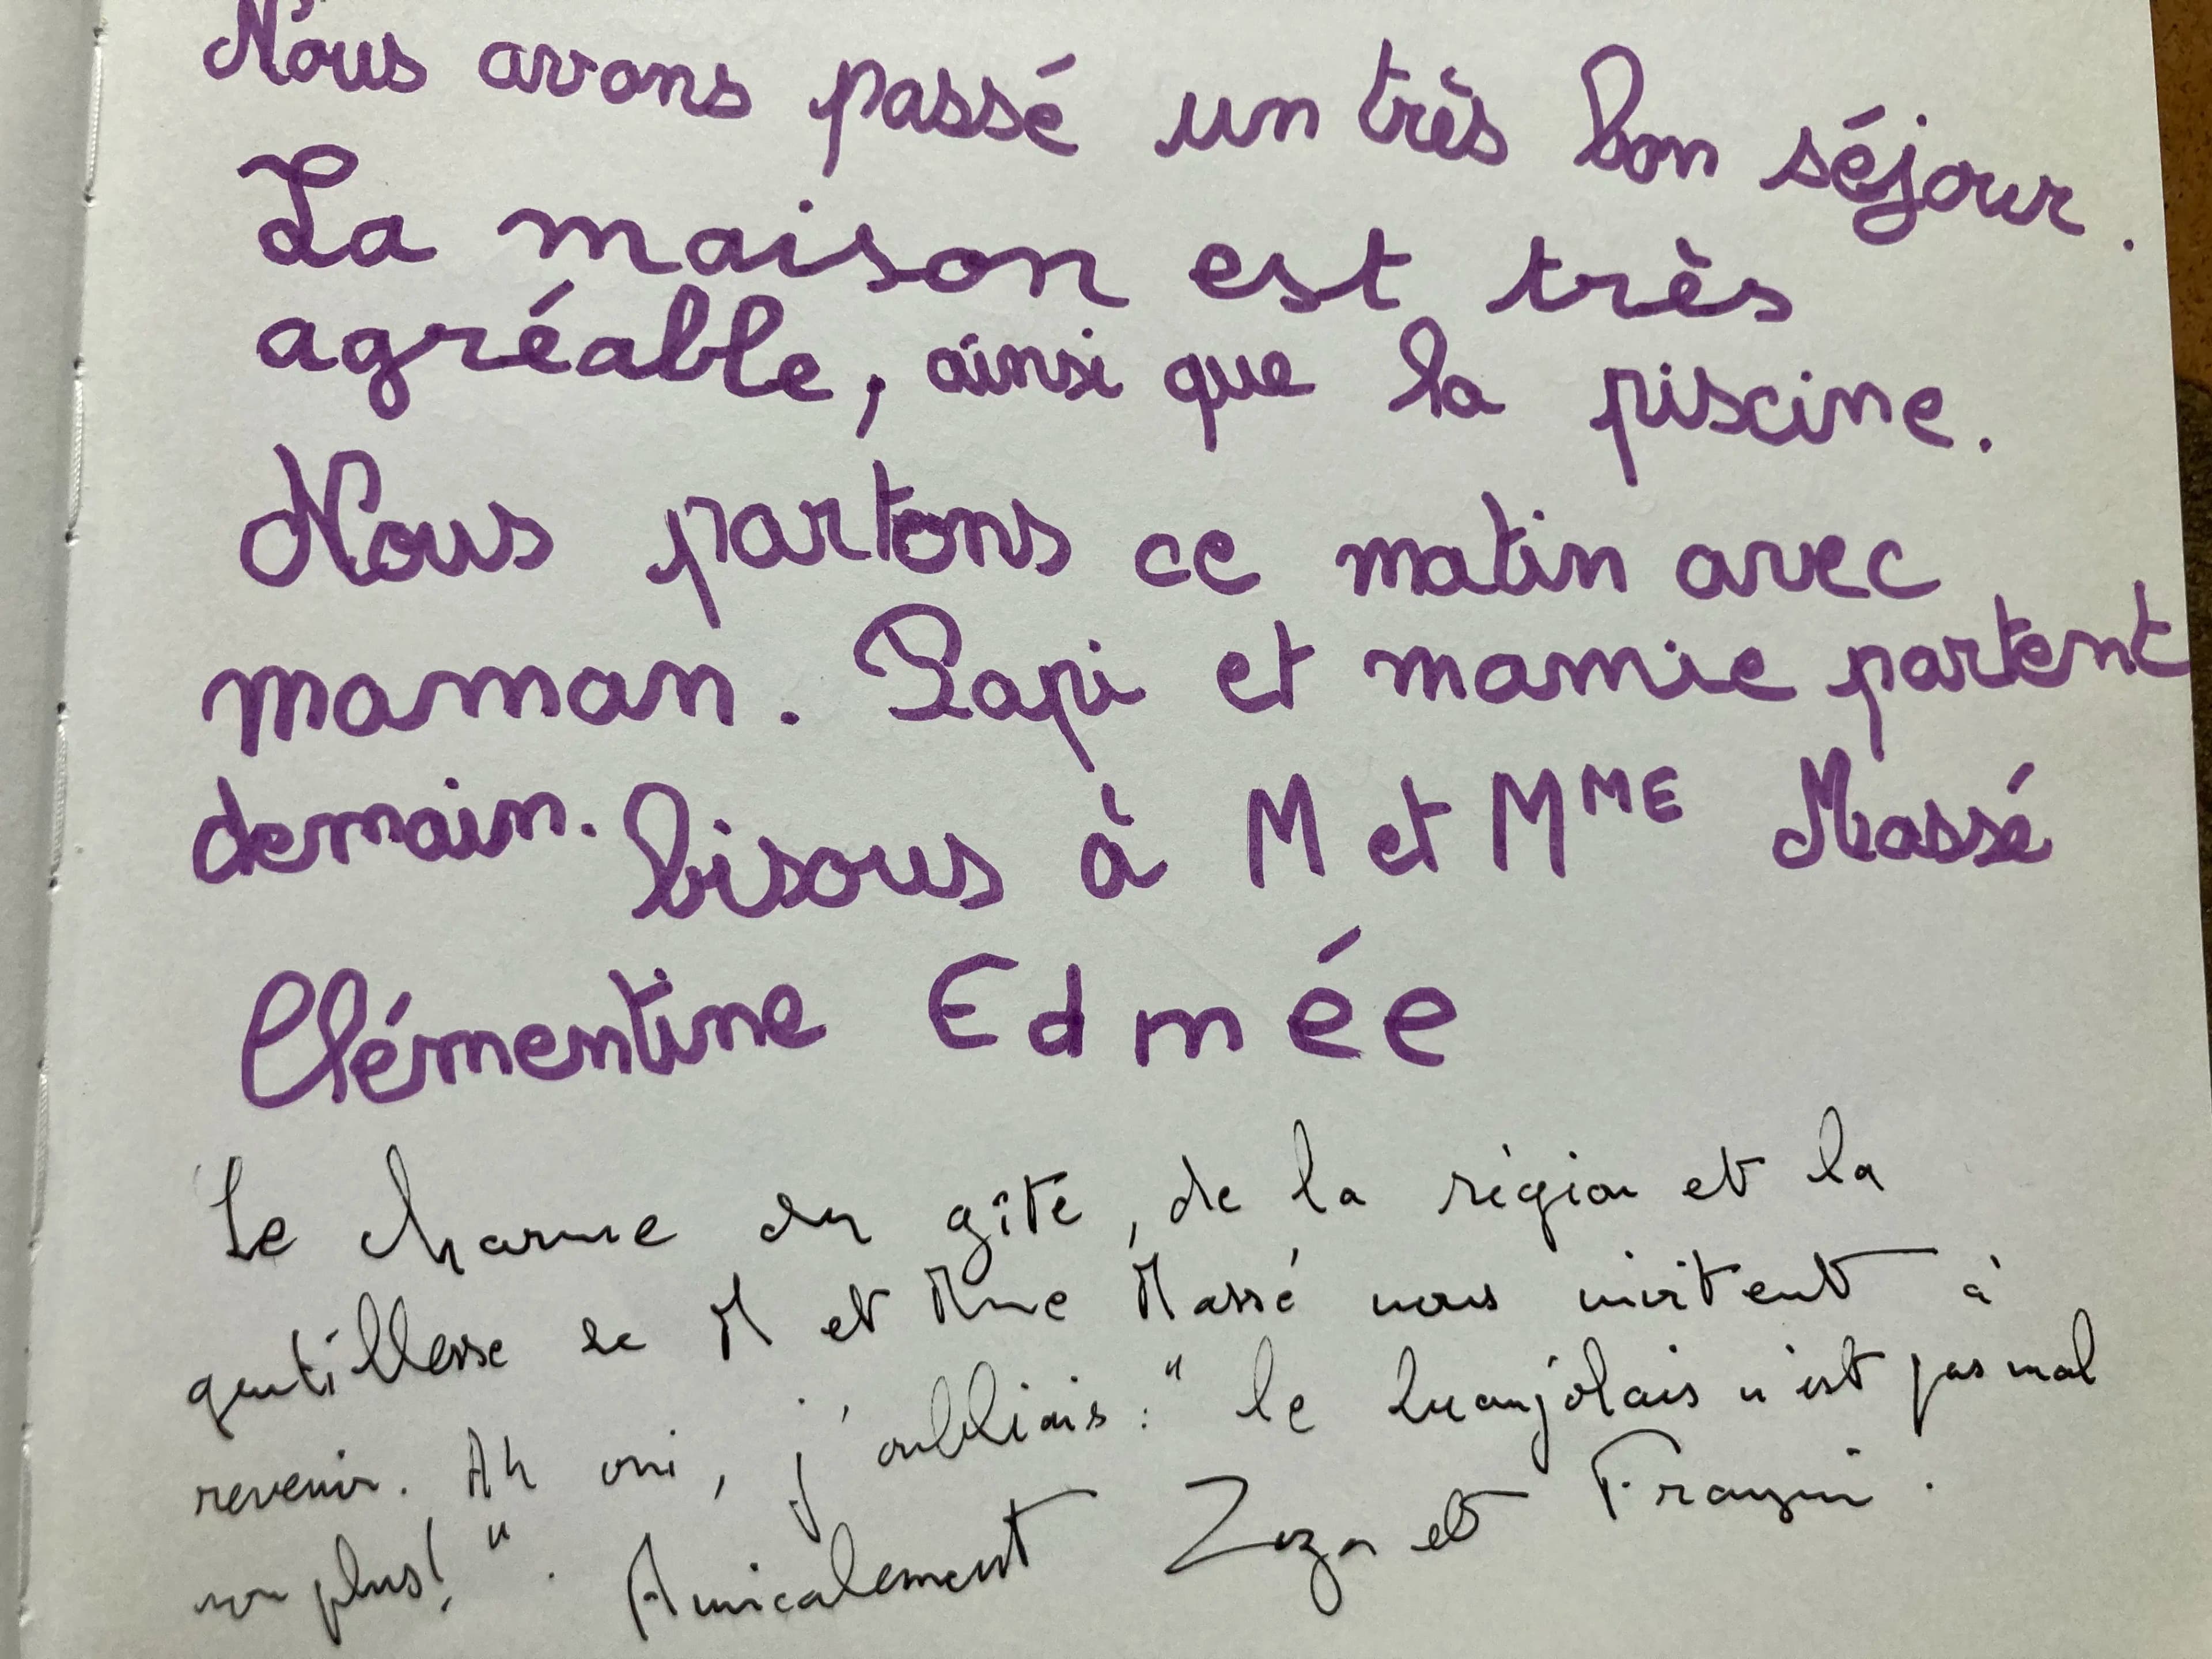 Nous avons passé un très bon séjour.
La maison est très
agréable, ainsi que la piscine.
Nous partons ce matin avec
maman. Papi et mamie partent
demain. bisous à M et MME Massé
Clémentine Edmée
Le charme du gîte, de la région et la
gentillesse de M et Mme Massé nous invitent à
revenir. Ah oui, j'oubliais : "le beaujolais n'est pas mal
non plus! ". Amicalement et